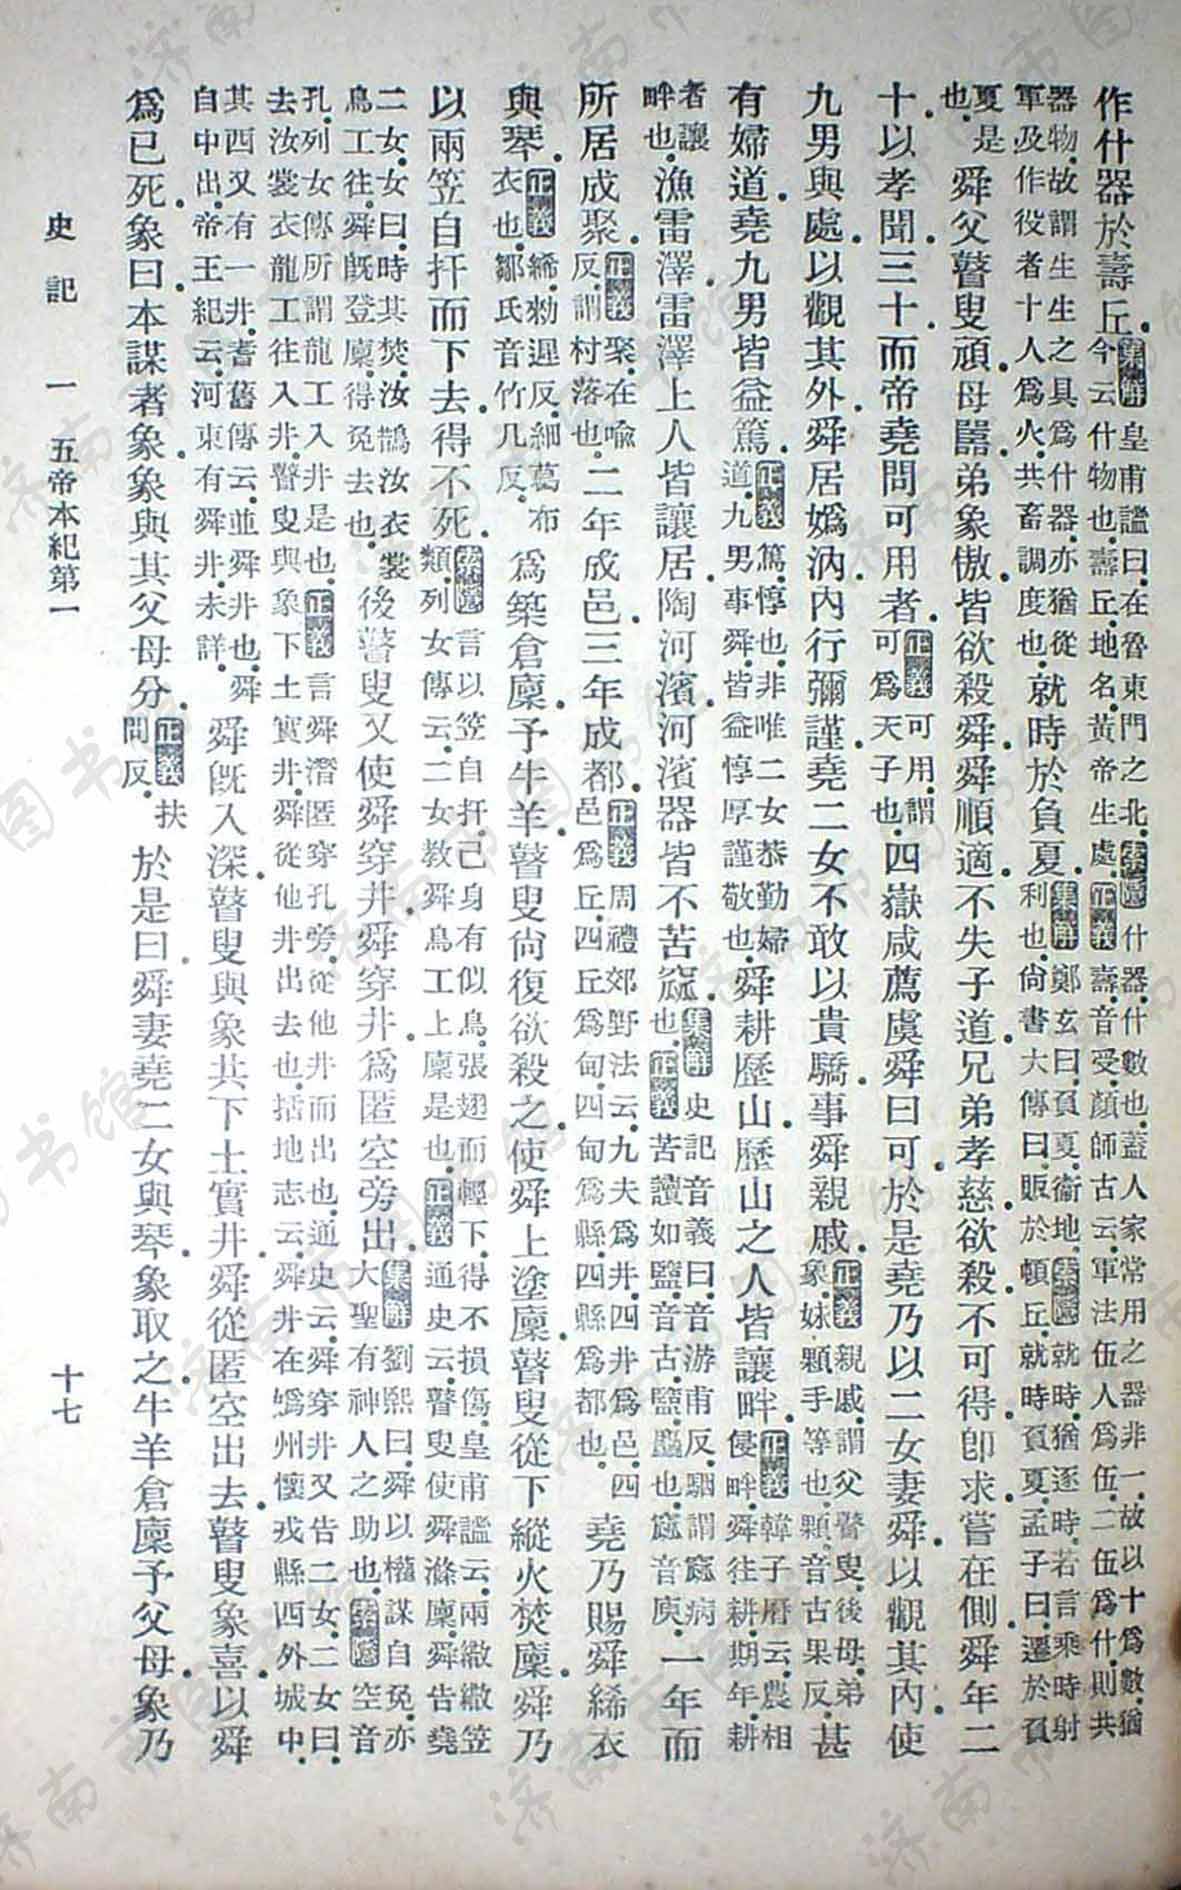 作什器於壽丘。集解皇甫謐曰。在魯東門之北。索隱什器。什數也。蓋人家常用之器非一。故以十爲數。猶今云什物也。壽丘。地名。黃帝生處。正義壽音受。顏師古云。軍法伍人爲伍。二伍爲什。則共
器物。故謂生生之具爲什器。亦猶從軍及作役者十人爲火。共畜調度也。就時於負夏。集解鄭玄曰。負夏。衞地。索隱就時。猶逐時。若言乘時射利也。尚書大傳曰。販於頓丘。就時負夏。孟子曰。遷於負
夏是也。舜父瞽叟頑。母嚚。弟象傲。皆欲殺舜。舜順適。不失子道。兄弟孝慈。欲殺。不可得。卽求。嘗在側。舜年二
十。以孝聞。三十。而帝堯問可用者。正義可用。謂可爲天子也。四嶽咸薦虞舜曰可。於是堯乃以二女妻舜。以觀其內。使
九男與處。以觀其外。舜居嬀汭。內行彌謹。堯二女不敢以貴驕。事舜親戚。正義親戚。謂父瞽叟。後母。弟象。妹顆手等也。顆。音古果反。甚
有婦道。堯九男皆益篤。正義篤。惇也。非唯二女恭勤婦道。九男事舜。皆益惇厚謹敬也。舜耕歷山。歷山之人皆讓畔。正義韓子曆云。農相侵畔。舜往耕。期年。耕
者讓畔也。漁雷澤。雷澤上人皆讓居。陶河濱。河濱器皆不苦窳。集解史記音義曰。音游甫反。駰謂窳。病也。正義苦讀如盬。音古。盬。麤也。窳音庾。一年而
所居成聚。正義聚。在喻反。謂村落也。二年成邑。三年成都。正義周禮郊野法云。九夫爲井。四井爲邑。四邑爲丘。四丘爲甸。四甸爲縣。四縣爲都也。堯乃賜舜絺衣
與琴。正義絺。勑遲反。細葛布衣也。鄒氏音竹几反。爲築倉廩。予牛羊。瞽叟尚復欲殺之。使舜上塗廩。瞽叟從下縱火焚廩。舜乃
以兩笠自扞而下去。得不死。索隱言以笠自扞。己身有似鳥。張翅而輕下。得不損傷。皇甫謐云。兩繖。繖。笠類。列女傳云。二女教舜鳥工上廩是也。正義通史云。瞽叟使舜滌廩。舜告堯
二女。女曰。時其焚汝。鵲汝衣裳鳥工往。舜既登廩。得免去也。後瞽叟又使舜穿井。舜穿井。爲匿空旁出。集解劉熙曰。舜以權謀自免。亦大聖有神人之助也。索隱空音
孔。列女傳所謂龍工入井是也。正義言舜潛匿穿孔旁。從他井而出也。通史云。舜穿井。又告二女。二女曰。去汝裳衣。龍工往入井。瞽叟與象下土實井。舜從他井出去也。括地志云。舜井在嬀州懷戎縣西外城中。
其西又有一井。耆舊傳云。並舜井也。舜自中出。帝王紀云。河東有舜井。未詳。舜既入深。瞽叟與象共下土實井。舜從匿空出去。瞽叟。象喜。以舜
爲已死。象曰。本謀者象。象與其父母分。正義扶問反。於是曰。舜妻堯二女與琴。象取之。牛羊倉廩予父母。象乃
史記 一 五帝本紀第一 十七